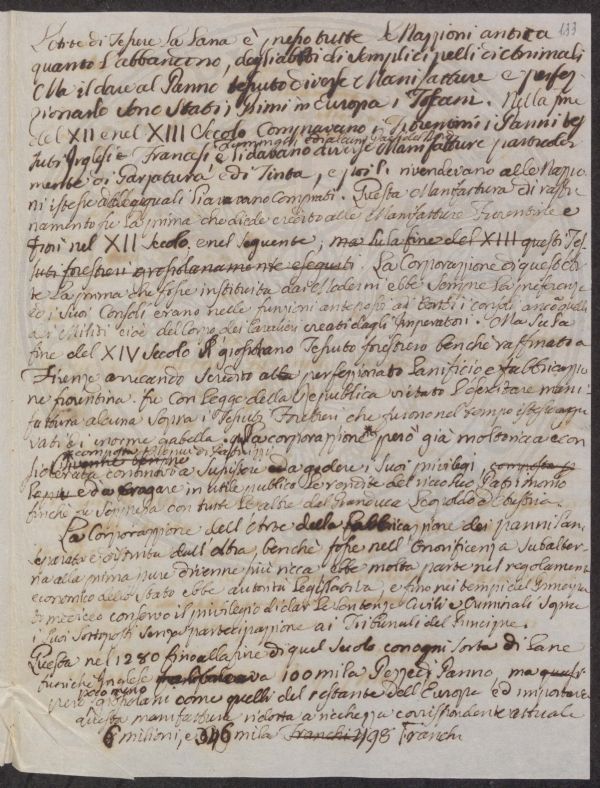 133
L'Arte di Tesere la Lana è presso tutte le Nazzioni antica
quanto l'abbandono, degli abiti di semplici pelli di Animali
Ma il dare al Panno tessuto diverse Manifatture e perfez-
zionarlo sono Stati i Primi in Europa i Toscani. Nella fine
del XII e nel XIII Secolo Compravano i Fiorentini i Panni tes
suti Inglesi e Francesi e li davano diverse Manifatture
mente di Garzatura e di Tinta, e poi li rivendevano alle Nazzio
ni istesse dalle quali li avevano Comprati. Questa Manifattura di raffi
namento fu la prima che diede credito alle Manifatture Fiorentine e
fiorì nel XII Secolo, e nel seguente, ma sula fine del XIII questi Tes
suti forestieri grossolanamente eseguiti. La Corporazzione di quest'Ar
te la prima che fosse instituita dai Mederni ebbe sempre la preferenza
e i Suoi Consoli erano nelle funzioni anteposti ai
ai Militi cioè del Corpo dei Cavalieri creati dagli Imperatori. Ma su la
fine del XIV Secolo il grossolano Tessuto forestiero benchè raffinato a
Firenze arrecando Scredito alla perfezzionata Lanificio e fabbricazzio
ne fiorentina. fu con Legge della Republica vietato l'esercitare mani
fattura alcuna Sopra i Tessuti Forestieri che furono nel tempo istesso aggra
vati d'enorme gabella. Quella corporazzione però già molto ricca e con
siderata continovò a Susistere e a godere i Suoi privilegi,
e ad erogare in utile publico le rendite del ricco suo Patrimonio
finchè fu soppressa con tutte le altre dal Granduca Leopoldo d'Austria.
La Corporazzione dell'Arte della Fabbricazzione dei panni Lani
separata e distinta dall'altra, benchè fosse nell'Onorificenza Subalter-
na alla prima pure divenne più ricca ebbe molta parte nel regolamento
economico dello Stato ebbe autorità Legislativa, e fino nei tempi del Principato
Mediceo conservò il privilegio di dar le Sentenze Civili e Criminali Sopra
i Suoi Sottoposti Senza partecipazzione ai Tribunali del Principe.
Questa nel 1280 fino alla fine di quel Secolo con ogni sorta di Lane
Inglese fabbricava 100 mila Pezze di Panno
grossolani come quelli del restante dell'Europa ed importava
questa manifattura ridotta a ricchezza corrispondente attuale
6 milioni, e 346 mila franchi 498 Franchi